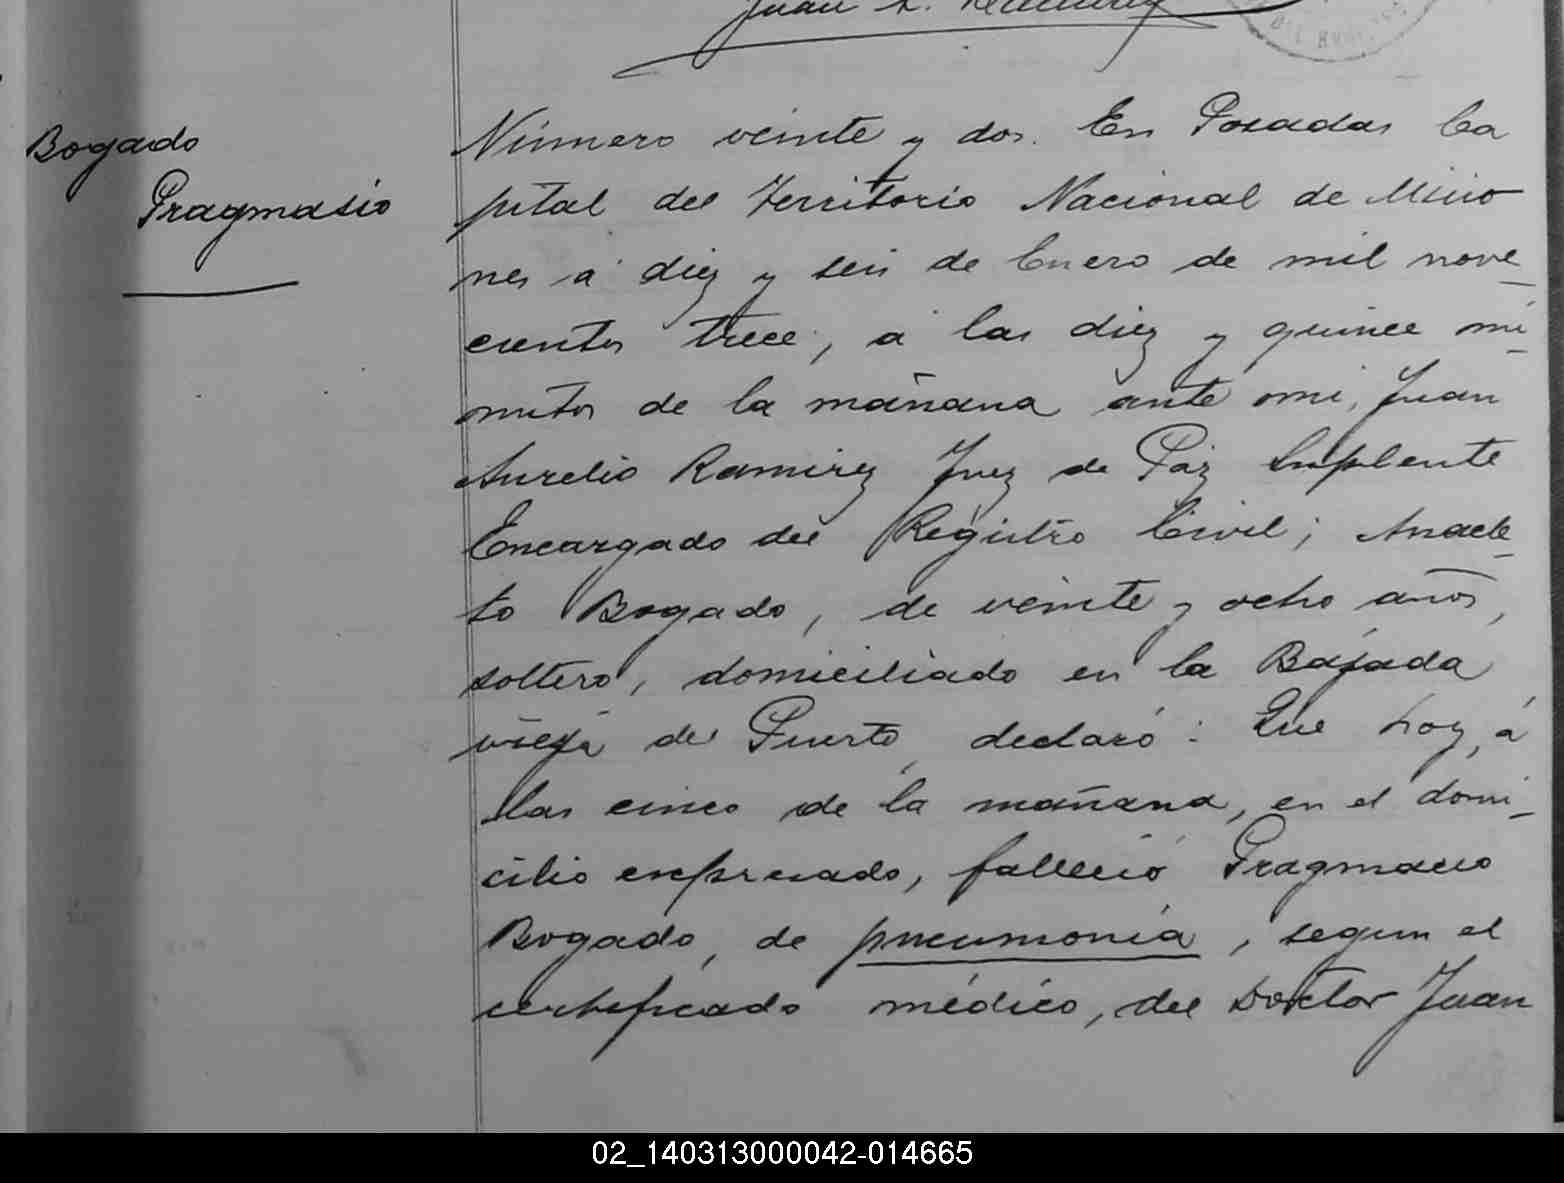 Juan A. Ramirez
Bogado
Pragmasio
Número veinte y dos. En Posadas Ca
pital del Territorio Nacional de Misio
nes á diez y seis de Enero de mil nove_
cientos trece, á las diez y quince mi_
nutos de la mañana ante mi, Juan
Aurelio Ramirez Juez de Paz Suplente
Encargado del Registro Civil; Anacle_
to Bogado, de veinte y ocho años,
soltero, domiciliado en la Bajada
vieja del Puerto, declaró: Que hoy, á
las cinco de la mañana, en el domi_
cilio expresado, falleció Pragmacio
Bogado, de pneumonia, segun el
certificado médico, del Doctor Juan
02_140313000042-014665